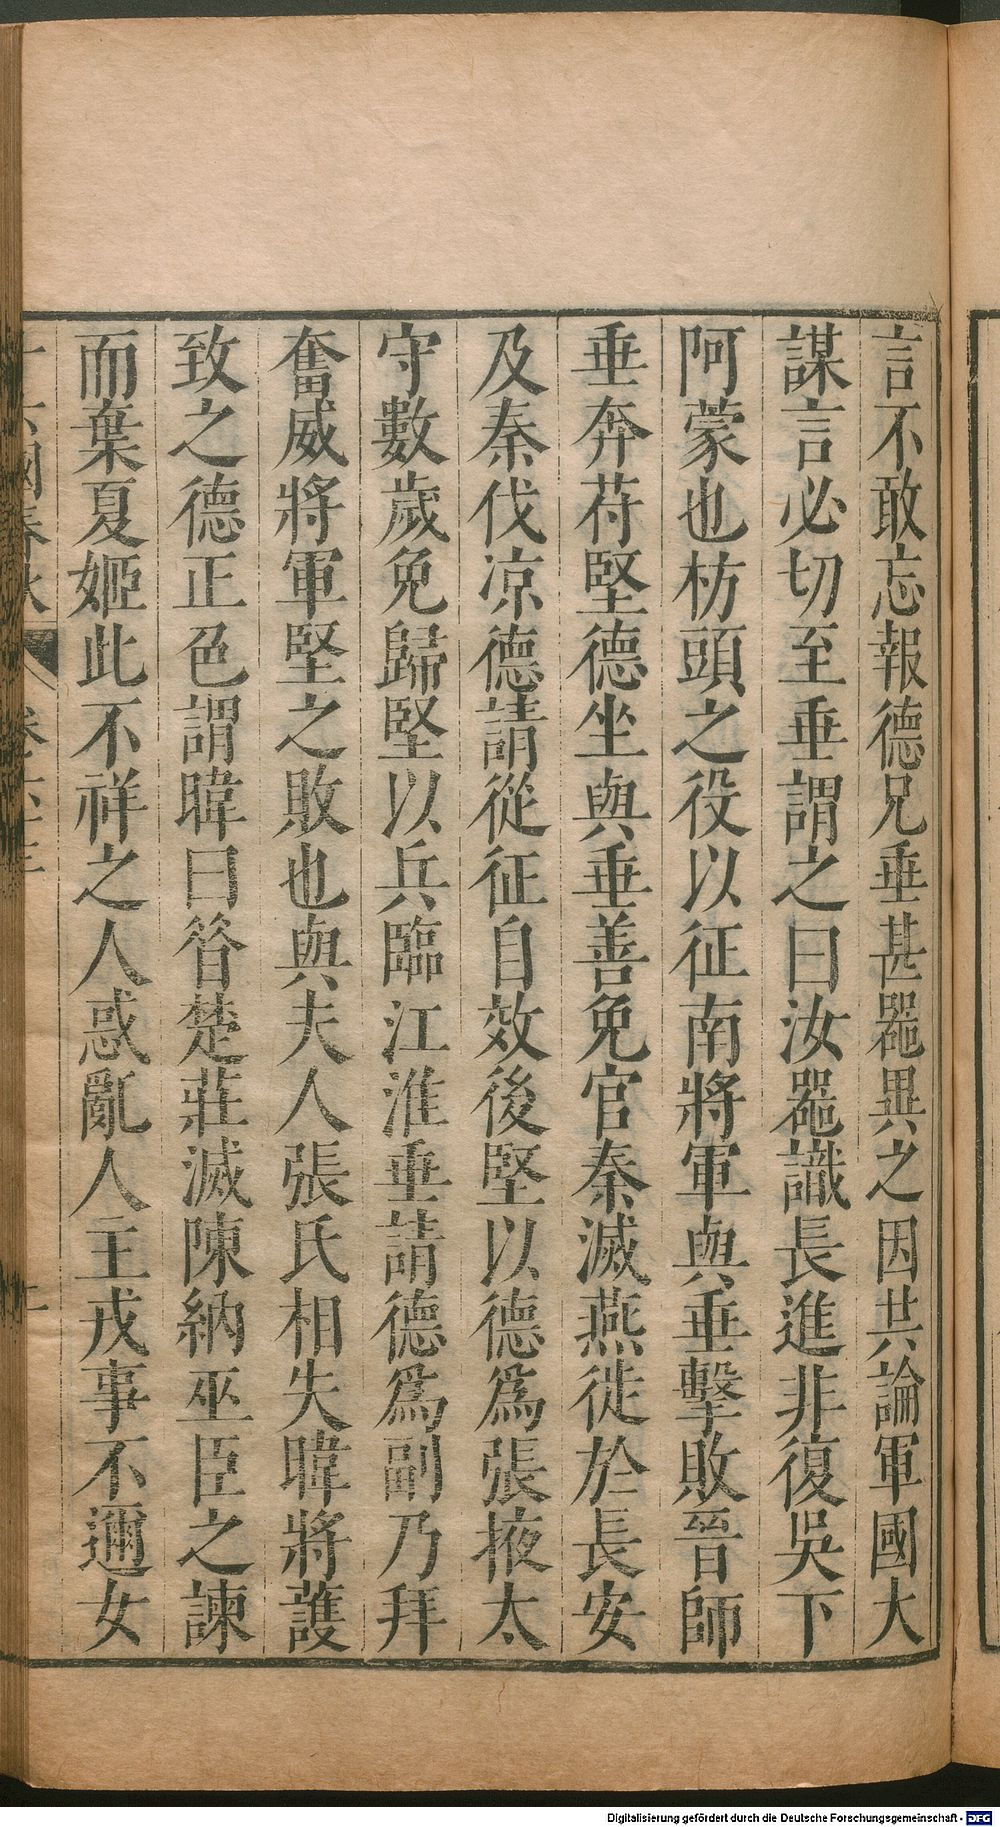 言不敢忘報德兄垂甚器異之因共論軍國大
謀言必切至垂謂之曰汝器識長進非復吳下
阿蒙也枋頭之役以征南將軍與垂擊敗晉師
垂奔苻堅德坐與垂善免官秦滅燕徙於長安
及秦伐凉德請從征自效後堅以德爲張掖太
守數歲免歸堅以兵臨江淮垂請德爲副乃拜
奮威將軍堅之敗也與夫人張氏相失暐將護
致之德正色謂暐曰昝楚莊滅陳納巫臣之諫
而棄夏姬此不祥之人惑亂人主戎事不邇女
十六國春秋
Digitalisierung gefördert durch die Deutsche Forschungsgemeinschaft - DFG